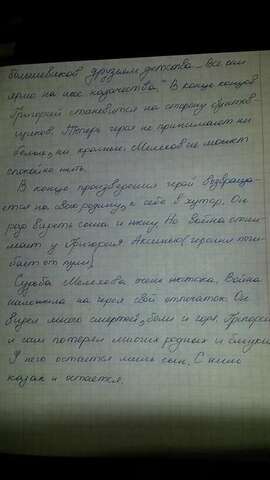 большевиков друзьям детства. Все сил
ярмо на шее казачества." В конце концов
Григорий становится на сторону бунтов-
щиков. Теперь героя не принимают ни
белые, ни красные. Мелехов не может
спокойно жить.
В конце произведения герой возвраща-
ется на свою родину, к себе в хутор. Он
рад видеть сына и жену. Но война отни-
мает у Григория Аксинью (героиня поги-
бает от пули).
Судьба Мелехова очень жестока. Война
наложила на героя свой отпечаток. Он
видел много смертей, боли и горя. Григорий
и сам потерял многих родных и близких
У него остается лишь сын. С ним
казак и остается.